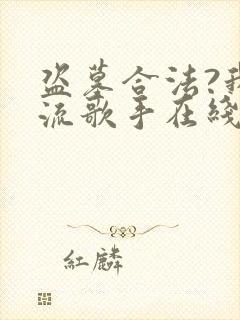 盗墓合法?我
流歌手在线
红麟